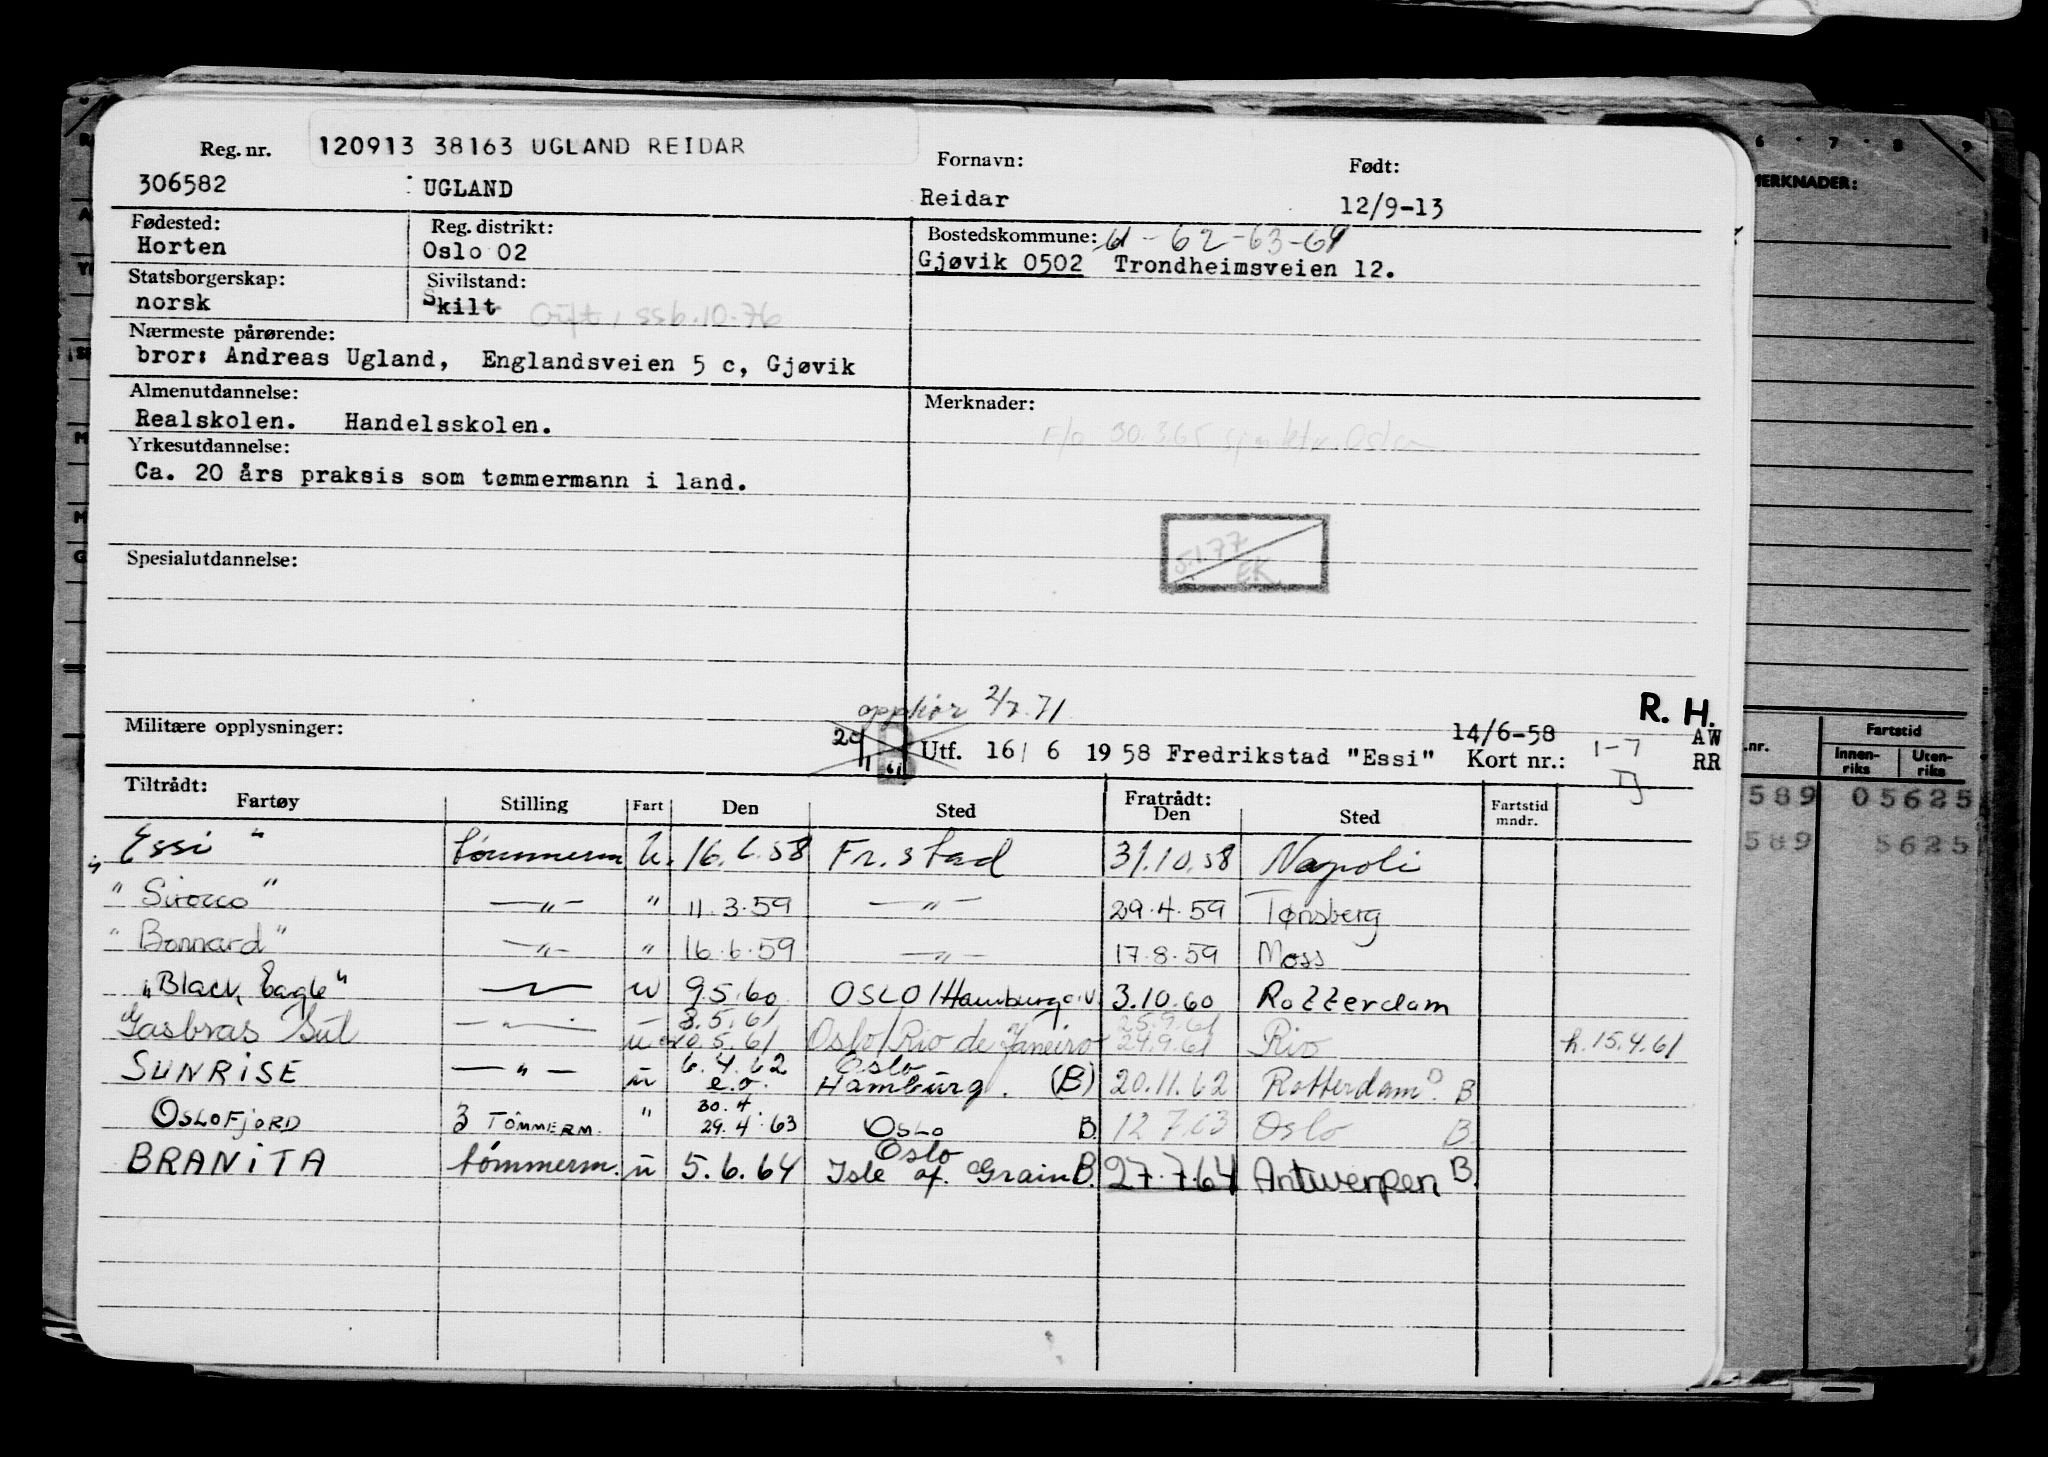 Reg. nr. 120913 38163 UGLAND REIDAR Fornavn: Født:
306582 UGLAND Reidar 12/9-13
Fødested: Reg. distrikt: Bostedskommune: 61-62-63-64
Horten Oslo 02 Gjøvik 0502 Trondheimsveien 12.
Statsborgerskap: Sivilstand:
norsk Skilt Gift, ssb.10.76
Nærmeste pårørende:
bror: Andreas Ugland, Englandsveien 5 c, Gjøvik
Almenutdannelse: Merknader:
Realskolen. Handelsskolen.
Yrkesutdannelse:
Ca. 20 års praksis som tømmermann i land.
5.1.77
EK
Spesialutdannelse:
opphør 2/7.71 R. H.
Militære opplysninger: Utf. 16/ 6 1958 Fredrikstad "Essi" 14/6-58 Kort nr.: 1-7 AW
RR
Tiltrådt: Fartøy Stilling Fart Den Sted Fratrådt: Den Sted Fartstid mndr.
"Essi" tømmerm. U. 16.6.58 Fr.stad 31.10.58 Napoli
"Sirocco" —"— " 11.3.59 —"— 29.4.59 Tønsberg
"Bonnard" —"— " 16.6.59 —"— 17.8.59 Moss
"Black Eagle" —"— u 9.5.60 OSLO/Hamburg 3.10.60 Rotterdam
8.5.61 25.9.61
Gasbras Sul —"— u 20.5.61 Oslo/Rio de Janeiro 24.9.61 Rio h.15.4.61
6.4.62 Oslo
SUNRISE —"— u e.o. Hamburg. (B) 20.11.62 Rotterdam. B
30.4.
OSLOFJORD 3 TØMMERM. " 29.4.63 OSLO B. 12.7.63 Oslo B.
Oslo
BRANITA tømmerm. u 5.6.64 Isle of. Grain B. 27.7.64 Antwerpen B.
6 7 8 9
MERKNADER:
nr. Fartstid
Innen-riks Uten-riks
589 05625
589 5625